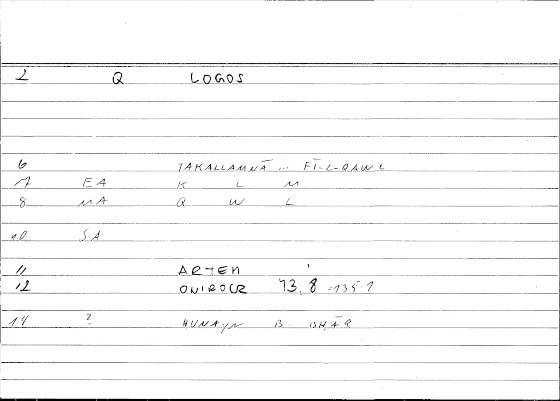 2 Q LOGOS
6 TAKALLAMNĀ ... FĪ-L-QAWL
7 EA K L M
8 MA Q W L
10 SA
11 ARTEM
12 ONIROCR 13,8
14 ? HUNAYN B. ISḤĀQ